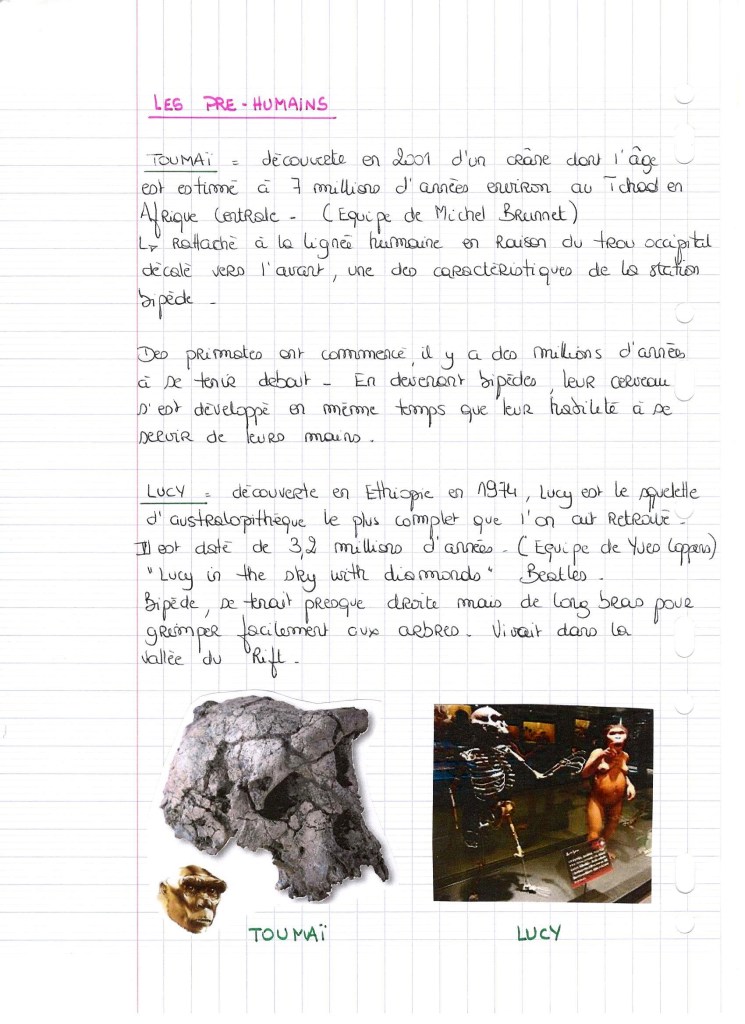 LES PRE-HUMAINS
TOUMAÏ = découverte en 2001 d'un crâne dont l'âge
est estimé à 7 millions d'années environ au Tchad en
Afrique Centrale - (Equipe de Michel Brunnet)
↳ Rattaché à la lignée humaine en Raison du trou occipital
décalé vers l'avant, une des caractéristiques de la station
bipède -
Des primates ont commencé, il y a des millions d'années
à se tenir debout - En devenant bipèdes, leur cerveau
s'est développé en même temps que leur habileté à se
servir de leurs mains.
LUCY = découverte en Ethiopie en 1974, Lucy est le squelette
d'australopithèque le plus complet que l'on ait Retrouvé -
Il est daté de 3,2 millions d'années - (Equipe de Yves Coppens)
"Lucy in the sky with diamonds" Beatles.
Bipède, se tenait presque droite mais de long bras pour
greimper facilement aux arbres. Vivait dans la
vallée du Rift.
TOUMAÏ
LUCY